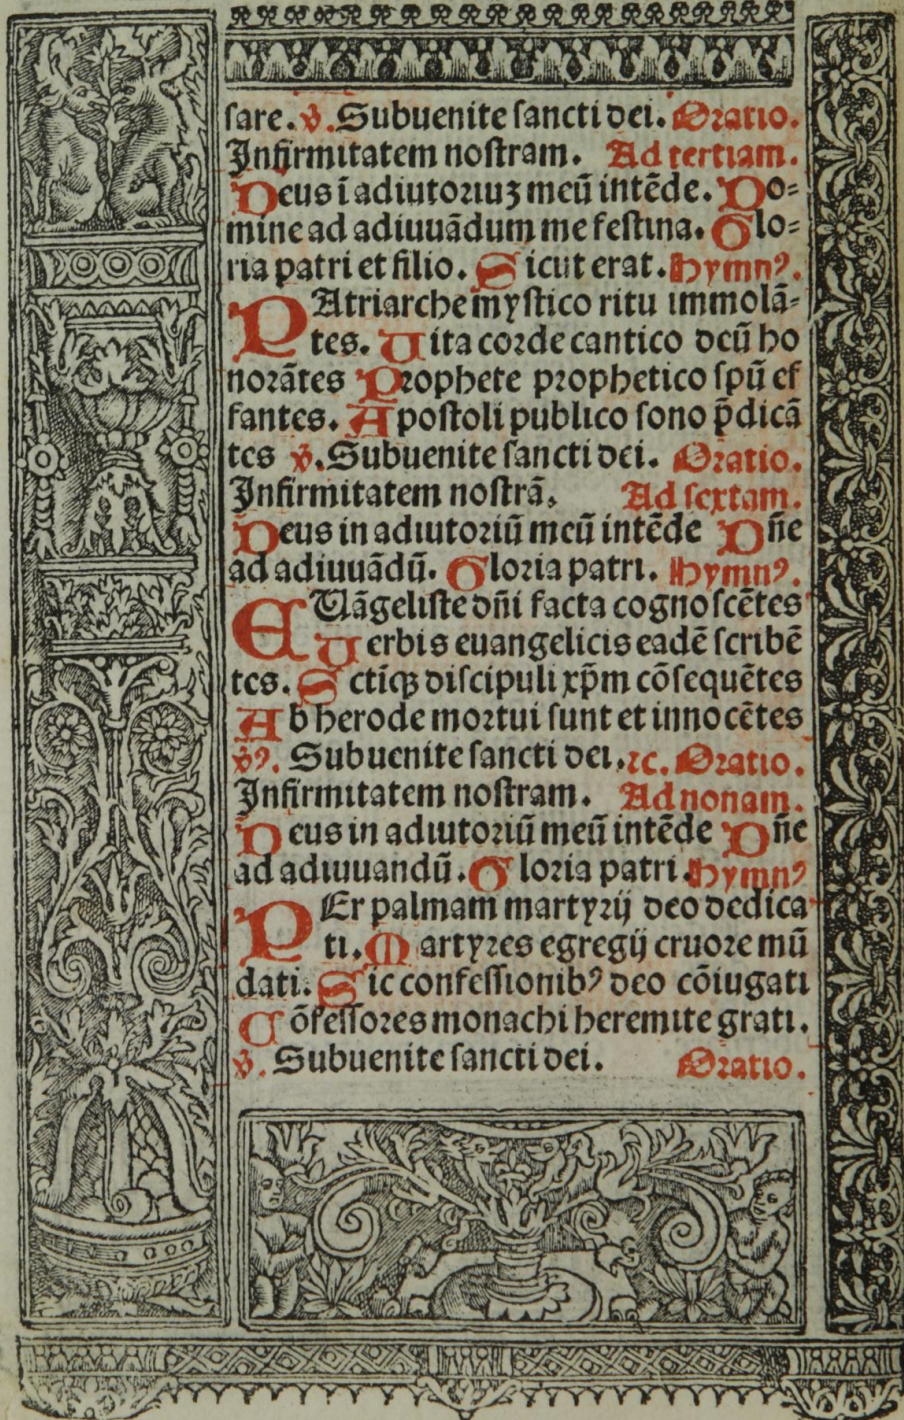 sare. ℣. Subuenite sancti dei. Oratio.
Infirmitatem nostram. Ad tertiam.
Deus ī adiutoriuꝫ meū intēde. Do⸗
mine ad adiuuādum me festina. Glo⸗
ria patri et filio. Sicut erat. Hymnꝰ.
PAtriarche mystico ritu immolā⸗
tes. Uita corde cantico deū ho
norātes Prophete prophetico spū ef
fantes. Apostoli publico sono p̄dicā
tes ℣. Subuenite sancti dei. Oratio.
Infirmitatem nostrā. Ad sextam.
Deus in adiutoriū meū intēde Dn̄e
ad adiuuādū. Gloria patri. Hymnꝰ.
EUāgeliste dn̄i facta cognoscētes
Uerbis euangelicis eadē scribē
tes. Sctiqꝫ discipuli xp̄m cōsequētes
Ab herode mortui sunt et innocētes
℣ꝰ. Subuenite sancti dei. ⁊c. Oratio.
Infirmitatem nostram. Ad nonam.
Deus in adiutoriū meū intēde Dn̄e
ad adiuuandū. Gloria patri. Hymnꝰ
PEr palmam martyrij deo dedica
ti. Martyres egregij cruore mū
dati. Sic confessionibꝰ deo cōiugati
Cōfessores monachi heremite grati.
℣. Subuenite sancti dei. Oratio.